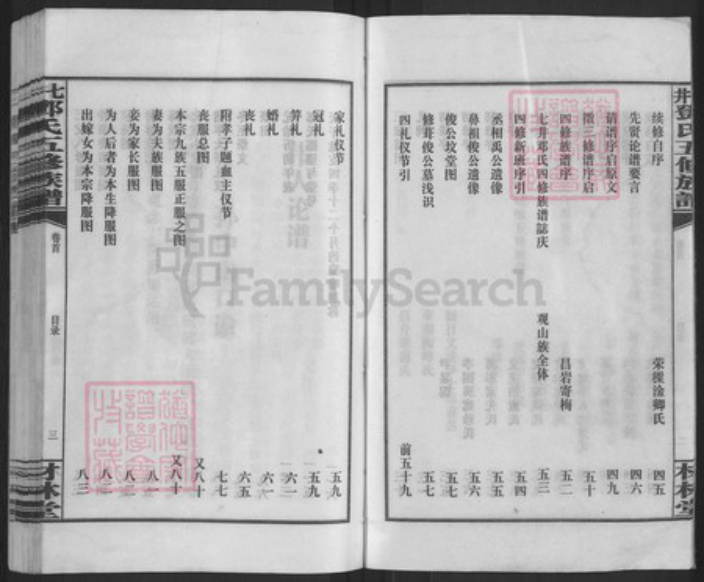 续修自序 荣檖淦卿氏 四五
先贤论谱要言 四六
请谱序启原文 四九
徵三修谱序启 五十
四修族谱序 昌岩寄梅 五二
七井邓氏四修族谱誌庆 观山族全体 五三
四修新班序引 五四
丞相禹公遗像 五五
鼻祖俊公遗像 五六
俊公坟堂图 五七
修葺俊公墓浅识 五七
四礼仪节引 前五十九
家礼仪节 五九
冠礼 五九
笄礼 六一
婚礼 六一
丧礼 六五
附孝子题血主仪节 七七
丧服总图 又八十
本宗九族五服正服之图 又八十
妻为夫族服图 八一
妾为家长服图 八二
为人后者为本生降服图 八二
出嫁女为本宗降服图 八三
井邓氏五修族谱
林堂
七邓氏五修族谱
卷首
目录
三
材林堂
FamilySearch